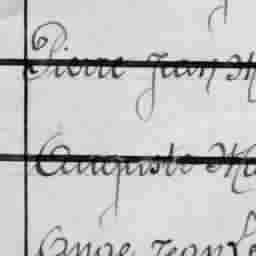 Pierre Jean
Auguste
Ange Jean